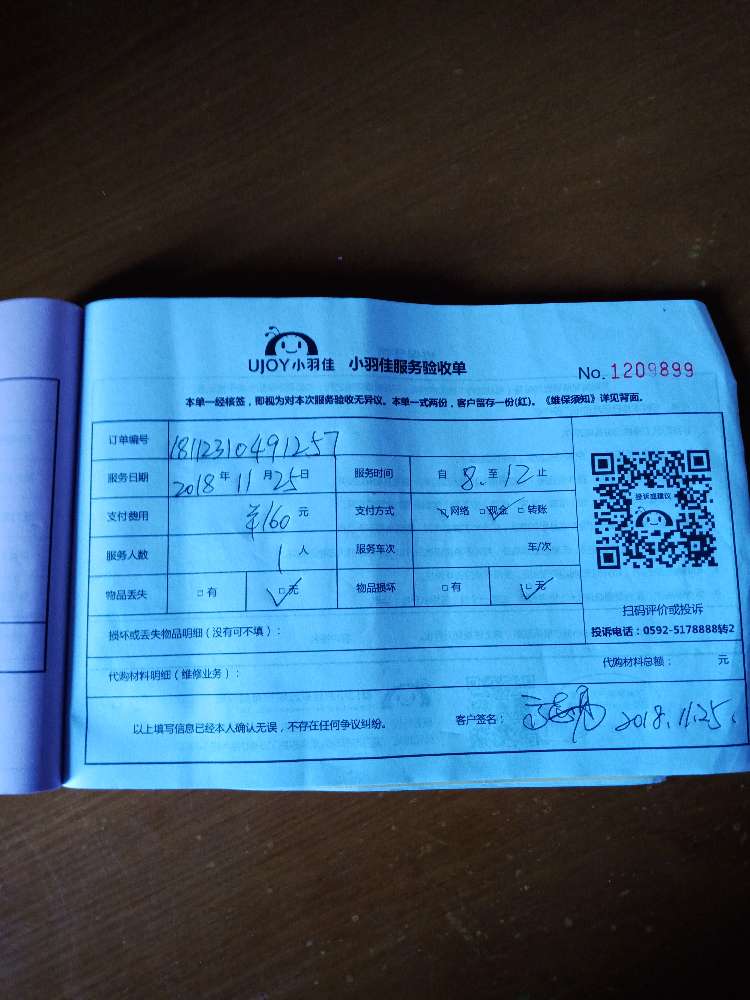 UJOY小羽佳 小羽佳服务验收单
No. 1209899
本单一经核签，即视为对本次服务验收无异议。本单一式两份，客户留存一份(红)。《维保须知》详见背面。
订单编号 18112310491257
服务日期 2018年11月25日 服务时间 自8.至12止
支付费用 ¥160元 支付方式 □网络 □现金 □转账
服务人数 1人 服务车次 车/次
物品丢失 □有 □无 物品损坏 □有 □无
投诉或建议
扫码评价或投诉
投诉电话：0592-5178888转2
损坏或丢失物品明细（没有可不填）：
代购材料明细（维修业务）： 代购材料总额： 元
以上填写信息已经本人确认无误，不存在任何争议纠纷。 客户签名： 2018.11.25.